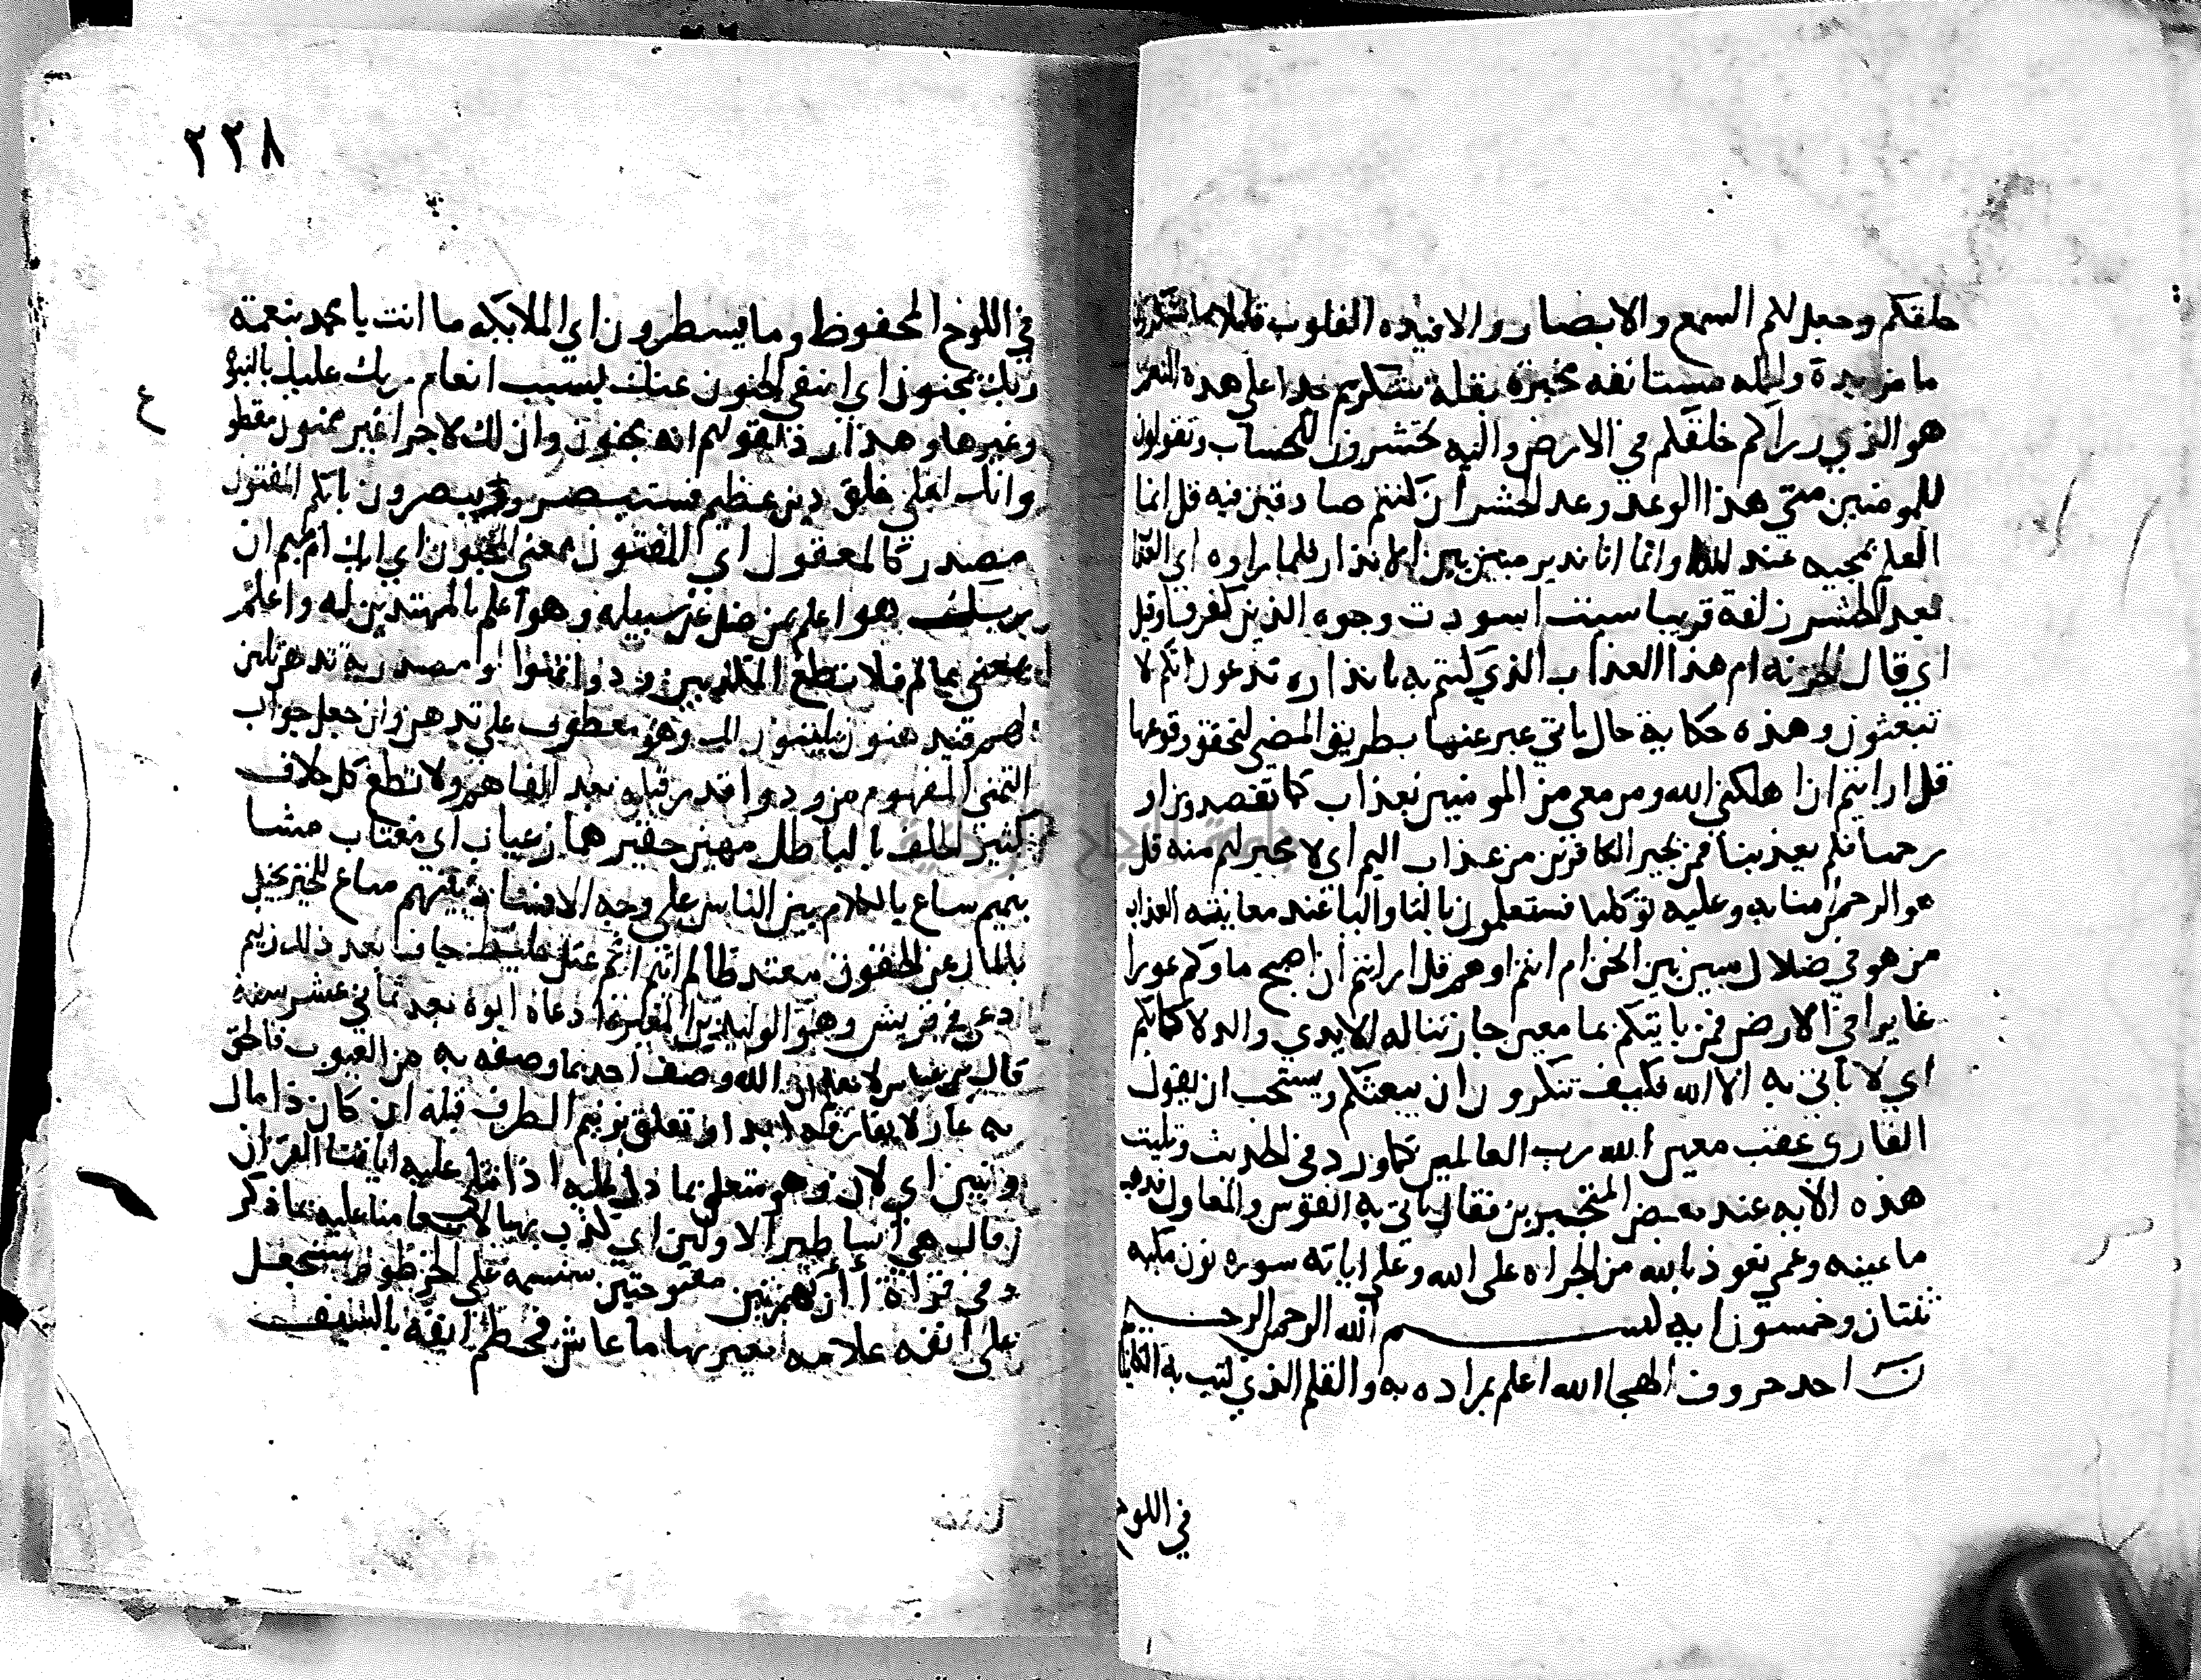 خلقكم وجعل لكم السمع والابصار والافيده القلوب قليلا ما تشكرون
ما مزيدة والجمله مستانفه مخبرة بقلة شكرهم جدا على هذه النعم
هو الذي ذراكم خلقكم في الارض واليه تحشرون للحساب وتقولون
للمومنين متى هذا الوعد وعد الحشر ان كنتم صادقين فيه قل انما
العلم بمجيه عند الله وانما انا نذير مبين بين الانذار فلما راوه اي العذا
بعد الحشر زلفة قريبا سيئت اسودت وجوه الذين كفروا وقيل
اي قال الخزنه لهم هذا العذاب الذي كنتم به بانذاره تدعون انكم لا
تبعثون وهذه حكاية حال ياتي عبر عنها بطريق المضي لتحقق وقوعها
قل ارايتم ان اهلكني الله ومن معي من المومنين بعذاب كما تقصدون او
رحمنا فلم يعذبنا فمن يجير الكافرين من عذاب اليم اي لا مجير لهم منه قل
هو الرحمن امنا به وعليه توكلنا فستعلمون بالتا واليا عند معاينة العذاب
من هو في ضلال مبين بين انحن ام انتم اوهم قل ارايتم ان اصبح ماوكم غورا
غايرا في الارض فمن ياتيكم بما معين جار تناله الايدي والدلا كمايكم
اي لا ياتي به الا الله فكيف تنكرون ان يبعثكم ويستحب ان يقول
القاري عقب معين الله رب العالمين كما ورد في الحديث وتليت
هذه الايه عند بعض المتجبرين فقال ياتي به الفوس والمعاول فذهب
ما عينه وعمي نعوذ بالله من الجراه على الله وعلى اياته سوره نون مكيه
ثنتان وخمسون ايه بسم الله الرحمن الرحيم
ن احد حروف الهجا الله اعلم بمراده به والقلم الذي كتب به الكاينا
في اللوح
٢٣٨
في اللوح المحفوظ وما يسطرون اي الملايكه ما انت يا محمد بنعمة
ربك بمجنون اي انتفى الجنون عنك بسبب انعام ربك عليك بالنبوة
وغيرها وهذا رد لقولهم انه مجنون وان لك لاجرا غير ممنون مقطو
وانك لعلى خلق دين عظيم فستبصر ويبصرون بايكم المفتون
مصدر كالمعقول اي المفتون بمعنى الجنون اي ابك ام بهم ان
ربك هو اعلم بمن ضل عن سبيله وهو اعلم بالمهتدين له واعلم
بمعنى عالم فلا تطع المكذبين ودوا تمنوا لو مصدرية تدهن تلين
لهم فيدهنون يلينون لك وهو معطوف على تدهن وان جعل جواب
التمني المفهوم من ودوا قدر قبله بعد الفا هم ولا تطع كل حلاف
كثير الحلف بالباطل مهين حقير هماز عياب اي مغتاب مشا
بنميم ساع بالكلام بين الناس على وجه الافساد بينهم مناع للخير بخيل
بالمال عن الحقوق معتد ظالم اثيم اثم عتل غليظ جاف بعد ذلك زنيم
دعي في قريش وهو الوليد بن المغيرة ادعاه ابوه بعد ثماني عشر سنة
قال بن عباس لا نعلم ان الله وصف احد بما وصفه به من العيوب فالحق
به عار لا يفارقه ابدا وتعلق بزنيم الظرف قبله ان كان ذا مال
وبنين اي لان وهو متعلق بما دل عليه اذا تتلى عليه اياتنا القران
قال هي اساطير الاولين اي كذب بها لانعامنا عليه بما ذكر
وفي قراة أأن بهمزتين مفتوحتين سنسمه على الخرطوم سنجعل
على انفه علامه يعير بها ما عاش فخطم انفه بالسيف